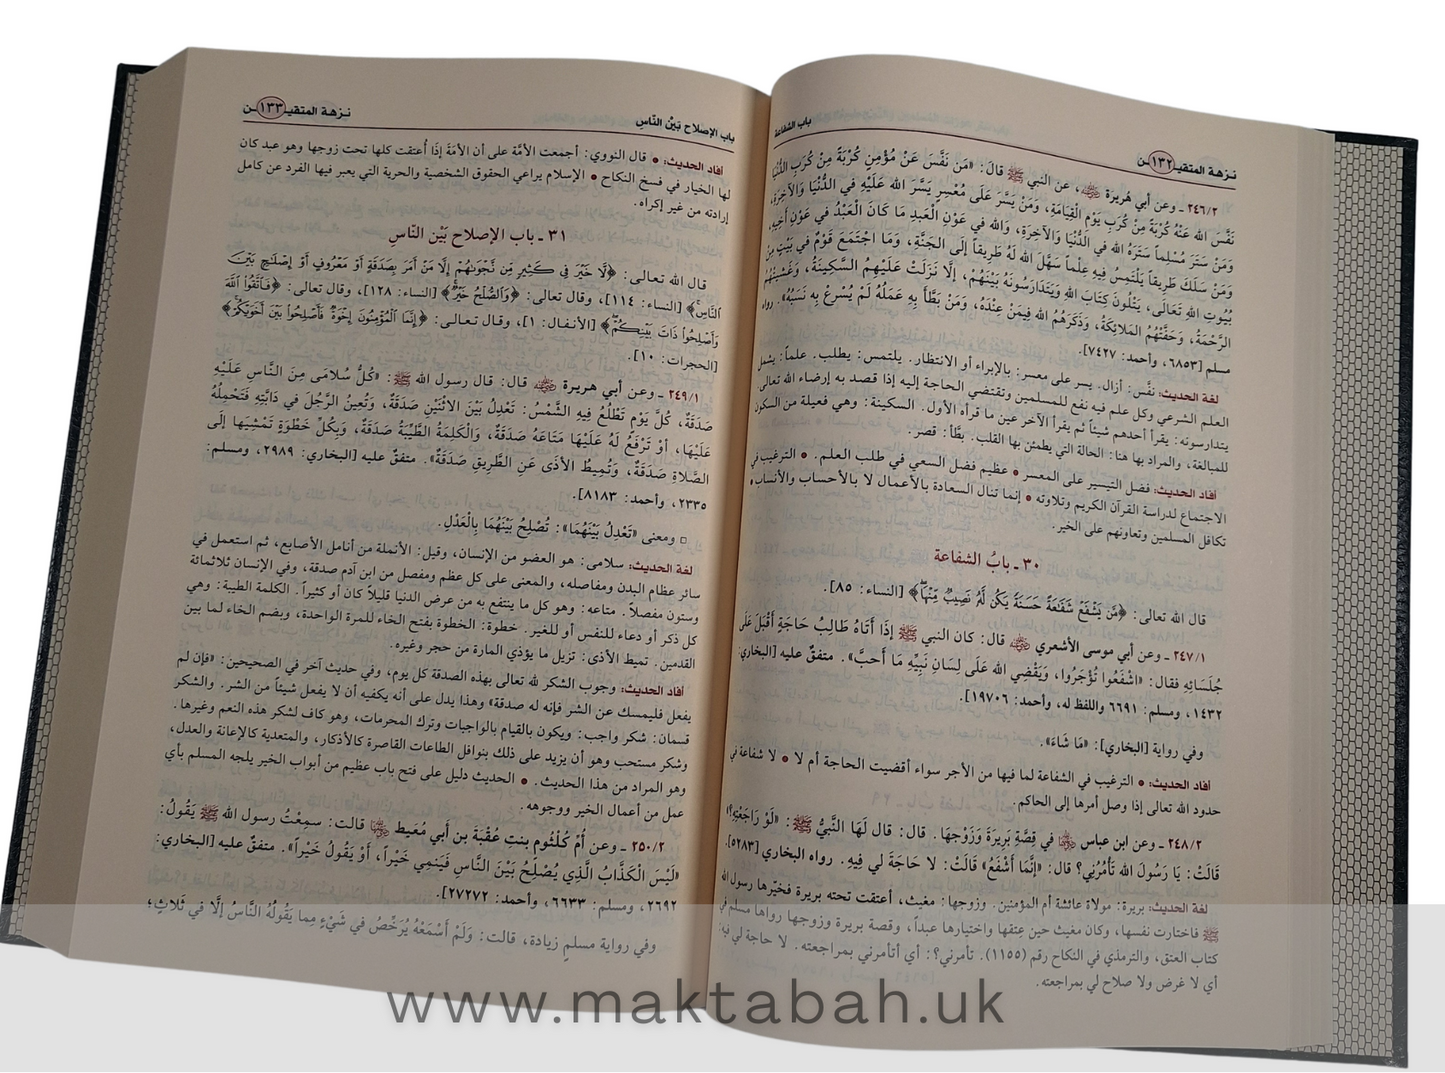 نـزهـة المتقيـ١٣٢ـن
باب الشفاعة
٢٤٦/٢ ـ وعن أبي هُريرة ﵁، عن النبي ﷺ قالَ: «مَن نَفَّسَ عَنْ مُؤْمِنٍ كُرْبَةً مِنْ كُرَبِ الدُّنْيَا
نَفَّسَ الله عَنْهُ كُرْبَةً مِنْ كُرَبِ يَوْمِ الْقِيَامَةِ، وَمَنْ يَسَّرَ عَلَى مُعْسِرٍ يَسَّرَ الله عَلَيْهِ في الدُّنْيَا وَالآخِرَةِ،
وَمَنْ سَتَرَ مُسْلِماً سَتَرَهُ الله في الدُّنْيَا وَالآخِرَةِ، والله في عَوْنِ الْعَبدِ مَا كَانَ الْعَبْدُ في عَوْنِ أَخِيهِ،
وَمَنْ سَلَكَ طَرِيقاً يَلْتَمِسُ فِيهِ عِلْماً سَهَّلَ الله لَهُ طَرِيقاً إِلَى الجَنَّةِ، وَمَا اجْتَمَعَ قَوْمٌ في بَيْتٍ مِنْ
بُيُوتِ اللهِ تَعَالَى، يَتْلُونَ كِتَابَ اللهِ وَيَتَدَارَسُونَهُ بَيْنَهُمْ، إلَّا نَزَلَتْ عَلَيْهِمُ السَّكِينَةُ، وَغَشِيَتْهُمُ
الرَّحْمَةُ، وَحَفَّتْهُمُ المَلائِكَةُ، وَذَكَرَهُمُ الله فِيمَنْ عِنْدَهُ، وَمَنْ بَطَّأَ بِهِ عَمَلُهُ لَمْ يُسْرِعْ بِهِ نَسَبُهُ». رواه
مسلم [٦٨٥٣، وأحمد: ٧٤٢٧].
لغة الحديث: نفَّس: أزال. يسر على معسر: بالإبراء أو الانتظار. يلتمس: يطلب. علماً: يشمل
العلم الشرعي وكل علم فيه نفع للمسلمين وتقتضي الحاجة إليه إذا قصد به إرضاء الله تعالى.
يتدارسونه: يقرأ أحدهم شيئاً ثم يقرأ الآخر عين ما قرأه الأول. السكينة: وهي فعيلة من السكون
للمبالغة، والمراد بها هنا: الحالة التي يطمئن بها القلب. بطَّأ: قصر.
أفاد الحديث: فضل التيسير على المعسر • عظيم فضل السعي في طلب العلم. • الترغيب في
الاجتماع لدراسة القرآن الكريم وتلاوته • إنما تنال السعادة بالأعمال لا بالأحساب والأنساب •
تكافل المسلمين وتعاونهم على الخير.
٣٠ ـ بابُ الشفاعة
قال الله تعالى: ﴿مَّن يَشْفَعْ شَفَٰعَةً حَسَنَةً يَكُن لَّهُ نَصِيبٌ مِّنْهَا﴾ [النساء: ٨٥].
٢٤٧/١ ـ وعن أبي موسى الأشعري ﵁ قال: كان النبي ﷺ إذَا أَتَاهُ طَالِبُ حَاجَةٍ أَقْبَلَ عَلَى
جُلَسَائِهِ فقال: «اشْفَعُوا تُؤْجَرُوا، وَيَقْضِي الله عَلَى لِسَانِ نَبِيِّهِ مَا أَحبَّ». متفقٌ عليه [البخاري:
١٤٣٢، ومسلم: ٦٦٩١ واللفظ له، وأحمد: ١٩٧٠٦].
وفي رواية [البخاري]: «مَا شَاءَ».
أفاد الحديث: • الترغيب في الشفاعة لما فيها من الأجر سواء أقضيت الحاجة أم لا • لا شفاعة في
حدود الله تعالى إذا وصل أمرها إلى الحاكم.
٢٤٨/٢ ـ وعن ابن عباس ﵄ في قِصَّةِ بَرِيرَةَ وَزَوْجِهَا. قال: قال لَهَا النَّبيُّ ﷺ: «لَوْ رَاجَعْتِهِ؟»
قَالَتْ: يَا رَسُولَ الله تَأْمُرُنِي؟ قال: «إِنَّمَا أَشْفَعُ» قَالَتْ: لا حَاجَةَ لي فِيهِ. رواه البخاري [٥٢٨٣].
لغة الحديث: بريرة: مولاة عائشة أم المؤمنين. وزوجها: مغيث، أعتقت تحته بريرة فخيّرها رسول الله
ﷺ فاختارت نفسها، وكان مغيث حين عِتقها واختيارها عبداً، وقصة بريرة وزوجها رواها مسلم في
كتاب العتق، والترمذي في النكاح رقم (١١٥٥). تأمرني؟: أي أتأمرني بمراجعته. لا حاجة لي فيه:
أي لا غرض ولا صلاح لي بمراجعته.
باب الإصلاح بَيْنْ النّاسِ
نـزهـة المتقيـ١٣٣ـن
أفاد الحديث: • قال النووي: أجمعت الأمّة على أن الأمَة إذَا أُعتقت كلها تحت زوجها وهو عبد كان
لها الخيار في فسخ النكاح • الإسلام يراعي الحقوق الشخصية والحرية التي يعبر فيها الفرد عن كامل
إرادته من غير إكراه.
٣١ ـ باب الإصلاح بَيْن النّاسِ
قال الله تعالى: ﴿لَّا خَيْرَ فِي كَثِيرٍ مِّن نَّجْوَىٰهُمْ إِلَّا مَنْ أَمَرَ بِصَدَقَةٍ أَوْ مَعْرُوفٍ أَوْ إِصْلَٰحٍ بَيْنَ
النَّاسِ﴾ [النساء: ١١٤]، وقال تعالى: ﴿وَالصُّلْحُ خَيْرٌ﴾ [النساء: ١٢٨]، وقال تعالى: ﴿فَاتَّقُوا اللَّهَ
وَأَصْلِحُوا ذَاتَ بَيْنِكُمْ﴾ [الأنفال: ١]، وقال تعالى: ﴿إِنَّمَا الْمُؤْمِنُونَ إِخْوَةٌ فَأَصْلِحُوا بَيْنَ أَخَوَيْكُمْ﴾
[الحجرات: ١٠].
٢٤٩/١ ـ وعن أبي هريرة ﵁ قال: قال رسول الله ﷺ: «كُلُّ سُلامَى مِنَ النَّاسِ عَلَيْهِ
صَدَقَةٌ، كُلَّ يَوْمٍ تَطْلُعُ فِيهِ الشَّمْسُ: تَعْدِلُ بَيْنَ الاثْنَيْنِ صَدَقَةٌ، وَتُعِينُ الرَّجُلَ في دَابَّتِهِ فَتَحْمِلُهُ
عَلَيْهَا، أَوْ تَرْفَعُ لَهُ عَلَيْهَا مَتَاعَهُ صَدَقَةٌ، وَالْكَلِمَةُ الطَّيِّبَةُ صَدَقَةٌ، وَبِكُلِّ خَطْوَةٍ تَمْشِيهَا إلَى
الصَّلاةِ صَدَقَةٌ، وَتُمِيطُ الأَذَى عَنِ الطَّرِيقِ صَدَقَةٌ». متفقٌ عليه [البخاري: ٢٩٨٩، ومسلم:
٢٣٣٥، وأحمد: ٨١٨٣].
□ ومعنى «تَعْدِلُ بَيْنَهُمَا»: تُصْلِحُ بَيْنَهُمَا بِالْعَدْلِ.
لغة الحديث: سلامى: هو العضو من الإنسان، وقيل: الأنملة من أنامل الأصابع، ثم استعمل في
سائر عظام البدن ومفاصله، والمعنى على كل عظم ومفصل من ابن آدم صدقة، وفي الإنسان ثلاثمائة
وستون مفصلاً. متاعه: وهو كل ما ينتفع به من عرض الدنيا قليلاً كان أو كثيراً. الكلمة الطيبة: وهي
كل ذكر أو دعاء للنفس أو للغير. خطوة: الخطوة بفتح الخاء للمرة الواحدة، وبضم الخاء لما بين
القدمين. تميط الأذى: تزيل ما يؤذي المارة من حجر وغيره.
أفاد الحديث: وجوب الشكر لله تعالى بهذه الصدقة كل يوم، وفي حديث آخر في الصحيحين: «فإن لم
يفعل فليمسك عن الشر فإنه له صدقة» وهذا يدل على أنه يكفيه أن لا يفعل شيئاً من الشر. والشكر
قسمان: شكر واجب: ويكون بالقيام بالواجبات وترك المحرمات، وهو كاف لشكر هذه النعم وغيرها.
وشكر مستحب وهو أن يزيد على ذلك بنوافل الطاعات القاصرة كالأذكار، والمتعدية كالإعانة والعدل،
وهو المراد من هذا الحديث. • الحديث دليل على فتح باب عظيم من أبواب الخير يلجه المسلم بأي
عمل من أعمال الخير ووجوهه.
٢٥٠/٢ ـ وعن أُمِّ كُلْثُومٍ بنتِ عُقْبَةَ بن أَبي مُعَيط ﵂ قالت: سمِعْتُ رسول الله ﷺ يَقُولُ:
«لَيْسَ الْكَذَّابُ الَّذِي يُصْلِحُ بَيْنَ النَّاسِ فَيَنمِي خَيْراً، أَوْ يَقُولُ خَيْراً». متفقٌ عليه [البخاري:
٢٦٩٢، ومسلم: ٦٦٣٣، وأحمد: ٢٧٢٧٢].
وفي رواية مسلمٍ زيادة، قالت: وَلَمْ أَسْمَعْهُ يُرَخِّصُ في شَيْءٍ مِما يَقُولُهُ النَّاسُ إلَّا في ثَلاثٍ؛
www.maktabah.uk